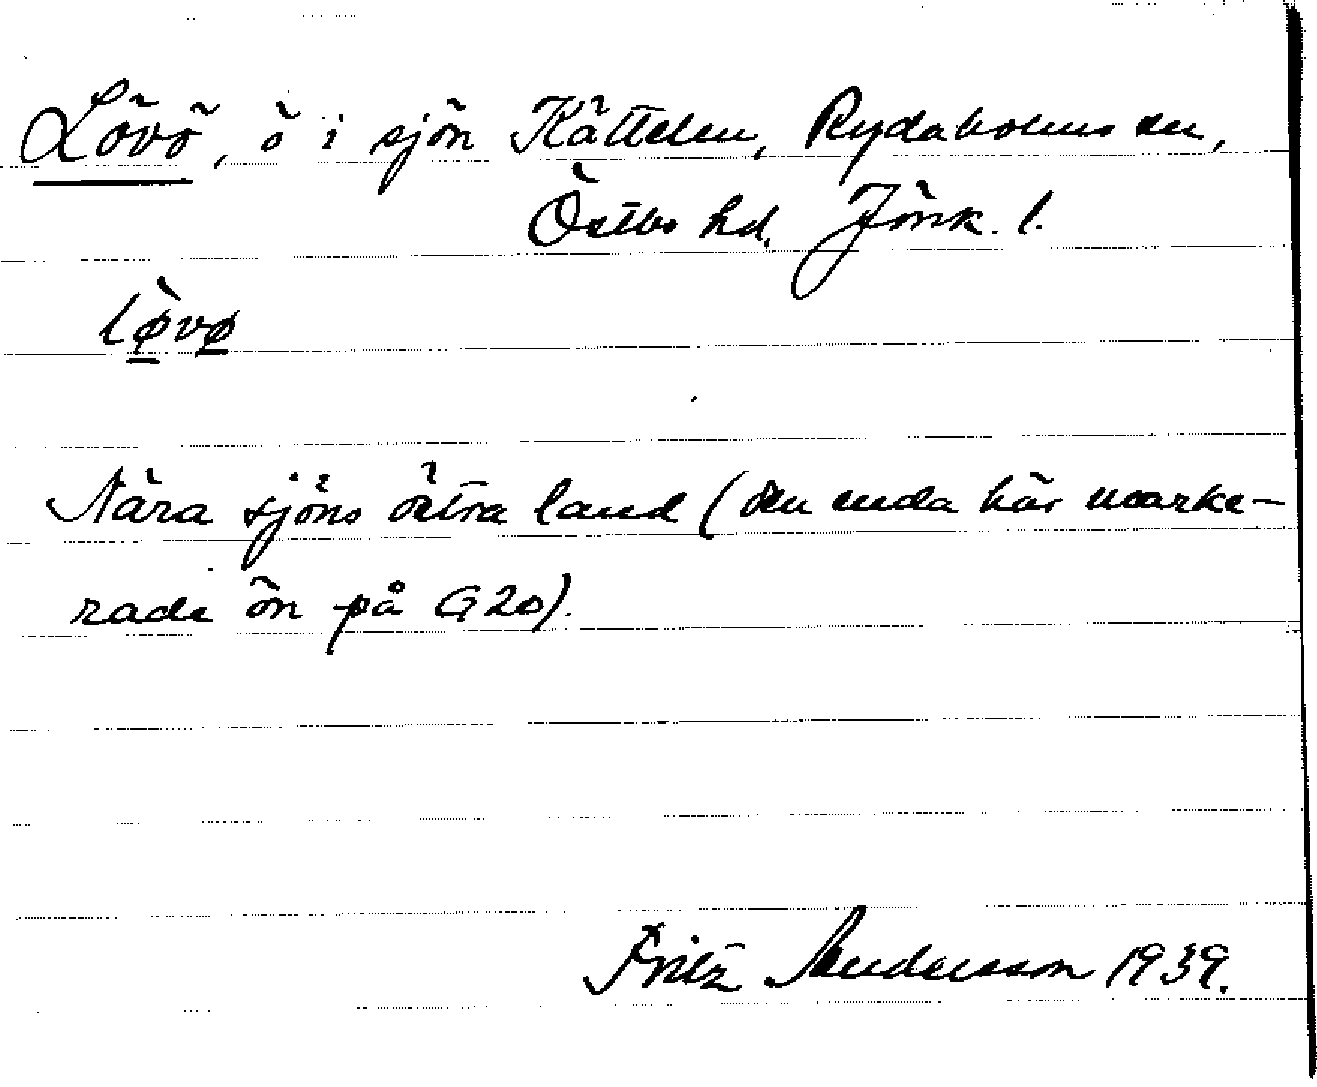 Lövö, ö i sjön Kättelen, Rydaholms sn,
Östbo hd, Jönk. l.
l<u>ø</u>̀v<u>ø</u>
Nära sjöns östra land (den enda här marke-
rade ön på G20).
Fritz Andersson 1939.